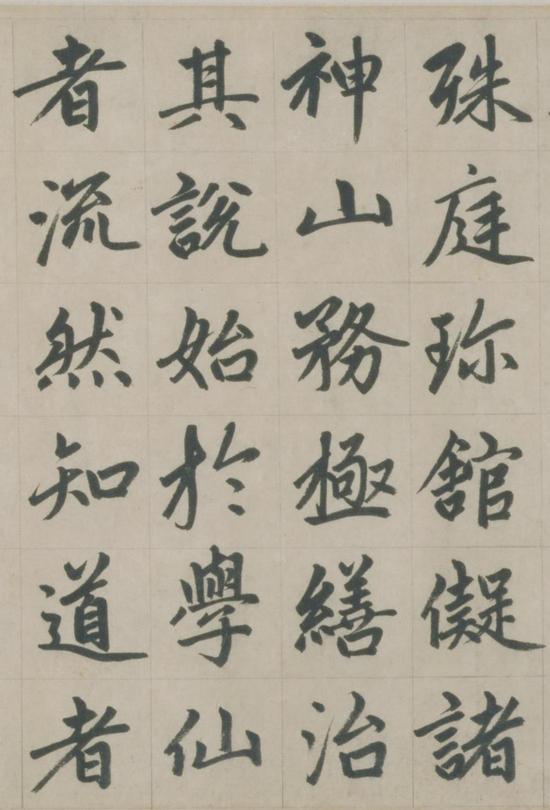 殊庭珎舘儗諸
神山務極繕治
其說始於學仙
者流然知道者